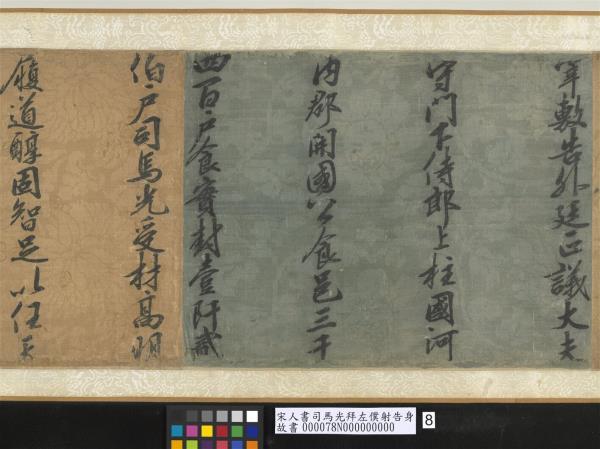 寧敷告外廷正議大夫
守門下侍郎上柱國河
內郡開國公食邑三千
四百戶食實封壹阡貳
伯戶司馬光受材高明
履道醇固智足以任天
宋人書司馬光拜左僕射告身
故書 000078N000000000
8